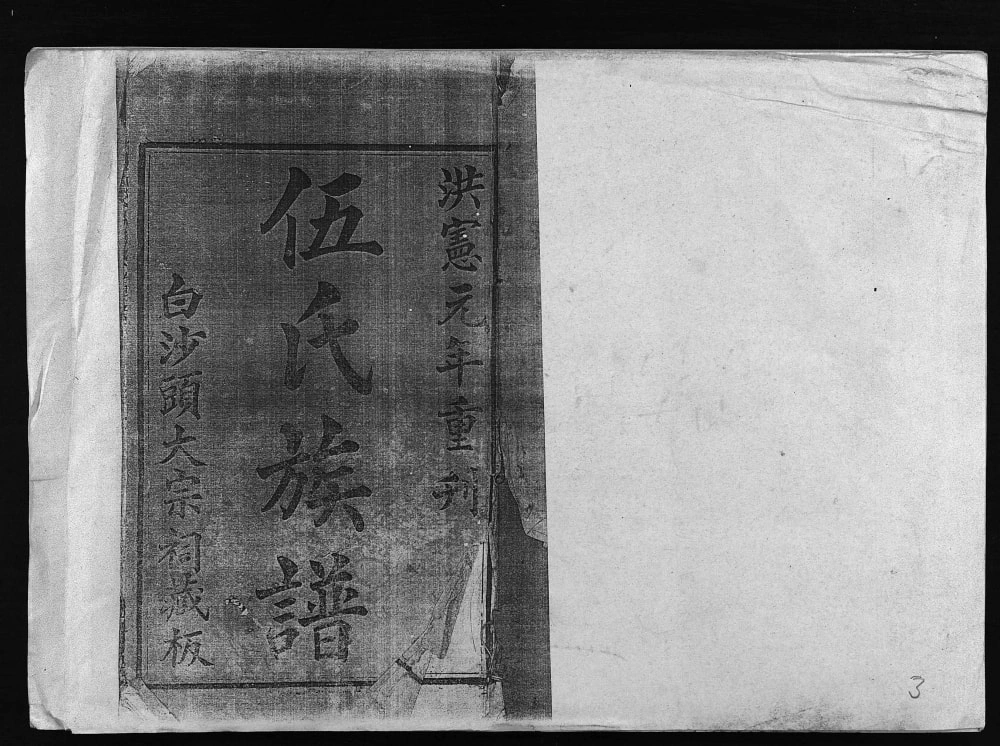 洪憲元年重刋
伍氏族譜
白沙頭大宗祠藏板
3